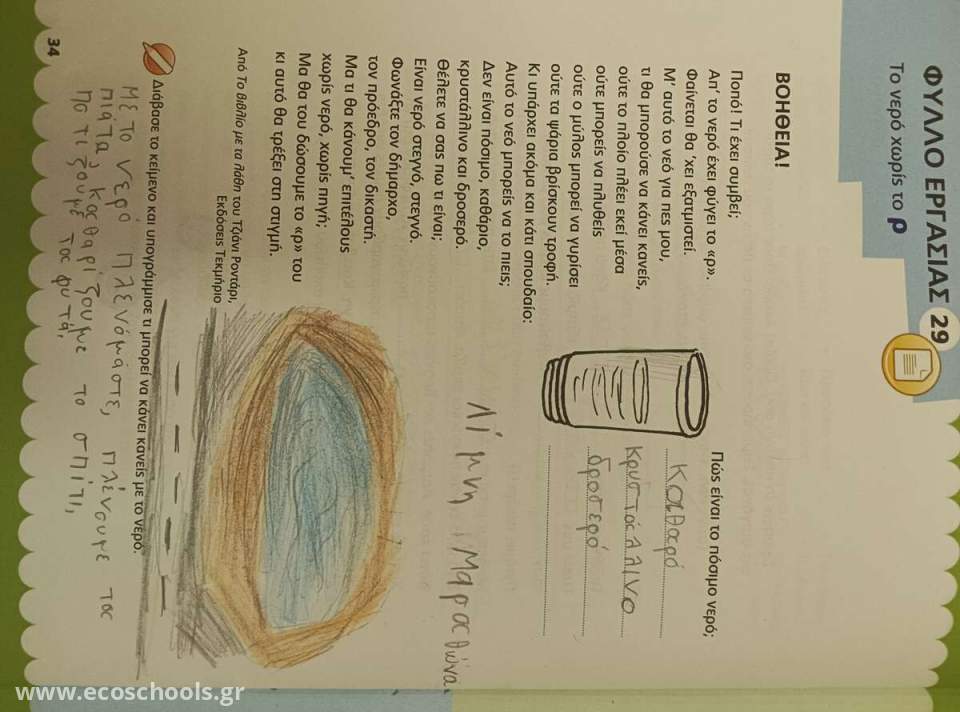 ΦΥΛΛΟ ΕΡΓΑΣΙΑΣ 29
Το νερό χωρίς το ρ
ΒΟΗΘΕΙΑ!
Ποπό! Τι έχει συμβεί;
Απ' το νερό έχει φύγει το «ρ».
Φαίνεται θα 'χει εξατμιστεί.
Μ' αυτό το νεό για πες μου,
τι θα μπορούσε να κάνει κανείς,
ούτε το πλοίο πλέει εκεί μέσα
ούτε μπορείς να πλυθείς
ούτε ο μύλος μπορεί να γυρίσει
ούτε τα ψάρια βρίσκουν τροφή.
Κι υπάρχει ακόμα και κάτι σπουδαίο:
Αυτό το νεό μπορείς να το πιεις;
Δεν είναι πόσιμο, καθάριο,
κρυστάλλινο και δροσερό.
Θέλετε να σας πω τι είναι;
Είναι νερό στεγνό, στεγνό.
Φωνάξτε τον δήμαρχο,
τον πρόεδρο, τον δικαστή.
Μα τι θα κάνουμ' επιτέλους
χωρίς νερό, χωρίς πηγή;
Μα θα του δώσουμε το «ρ» του
κι αυτό θα τρέξει στη στιγμή.
Από Το βιβλίο με τα λάθη του Τζάνι Ροντάρι,
Εκδόσεις Τεκμήριο
Πώς είναι το πόσιμο νερό;
Καθαρό
Κρυστάλλινο
δροσερό
Λίμνη Μαραθώνα
Διάβασε το κείμενο και υπογράμμισε τι μπορεί να κάνει κανείς με το νερό.
Με το νερό πλενόμάστε, πλένουμε τας
πιάτα, καθαρίζουμε το σπίτι,
ποτίζουμε τας φυτά,
34
www.ecoschools.gr